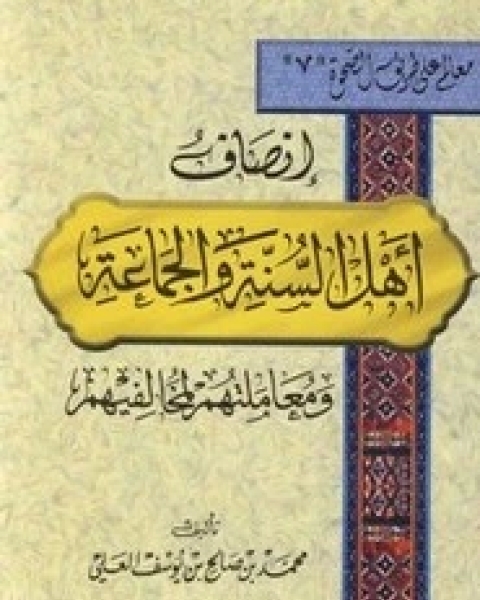 معالم على طريق الصحوة "٧"
إنصاف
أهل السنة والجماعة
ومعاملتهم لمخالفيهم
تأليف
محمد بن صالح بن يوسف العلي